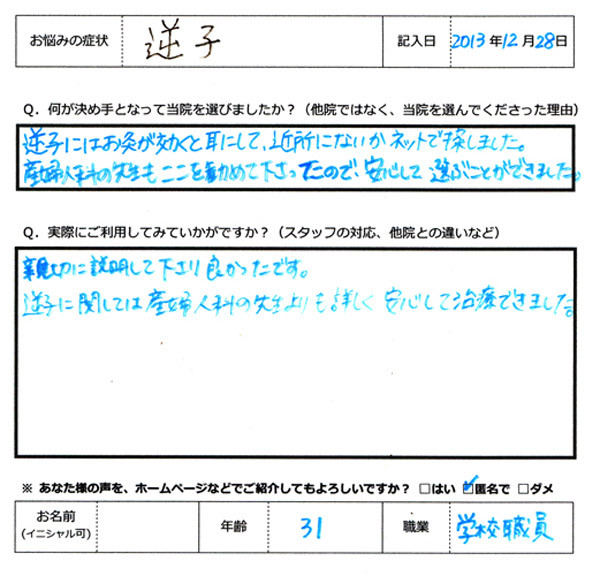 お悩みの症状 逆子 記入日 2013年12月28日
Q．何が決め手となって当院を選びましたか？（他院ではなく、当院を選んでくださった理由）
逆子にはお灸が効くと耳にして、近所にないかネットで探しました。
産婦人科の先生もここを勧めて下さったので、安心して選ぶことができました。
Q．実際にご利用してみていかがですか？（スタッフの対応、他院との違いなど）
親切に説明して下さり良かったです。
逆子に関しては産婦人科の先生よりも詳しく安心して治療できました。
※ あなた様の声を、ホームページなどでご紹介してもよろしいですか？ □はい ☑匿名で □ダメ
お名前 年齢 31 職業 学校職員
(イニシャル可)